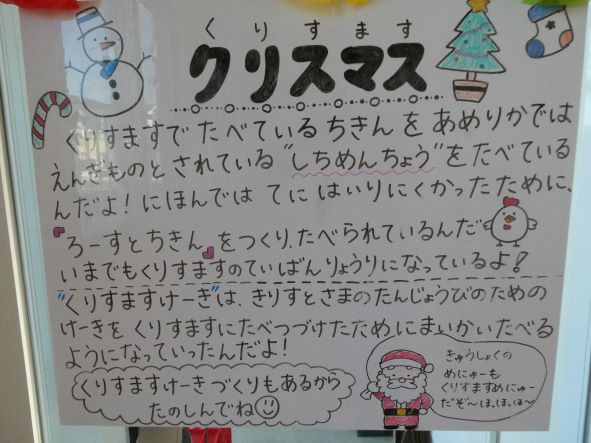 くりすます
クリスマス
くりすますで たべている ちきん を あめりかでは
えんぎものと されている "しちめんちょう" を たべている
んだよ！にほんでは てに はいりにくかったために、
『ろーすとちきん』をつくり、たべられているんだ
いまでもくりすますのていばんりょうりになっているよ！
"くりすますけーき"は、きりすとさまのたんじょうびのための
けーきを くりすますにたべつづけたために まいかいたべる
ようになっていったんだよ！
くりすますけーきづくりもあるから
たのしんでね
きゅうしょくの
めにゅーも
くりすますめにゅー
だぞ〜ほ、ほ、ほ〜